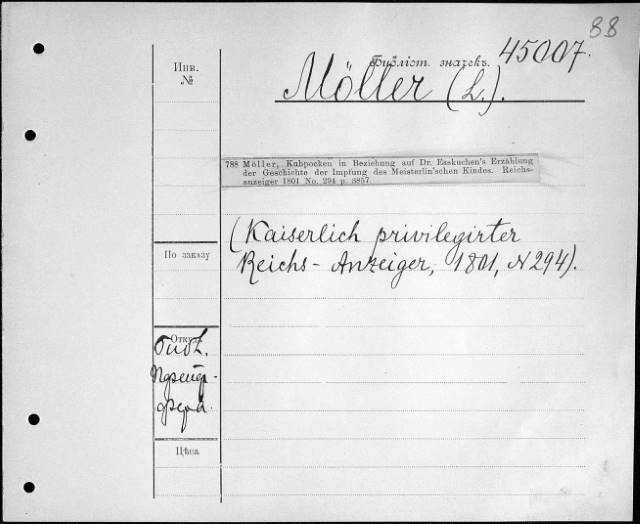 88
Инв.
№
Библіот. значекъ.
45007.
Möller (L.).
788 Möller, Kuhpocken in Beziehung auf Dr. Esskuchen's Erzählung
der Geschichte der Impfung des Meisterlin'schen Kindes. Reichs-
anzeiger 1801 No. 294 p. 3857.
(Kaiserlich privilegirter
Reichs-Anzeiger, 1801, N 294).
По заказу
Цѣна